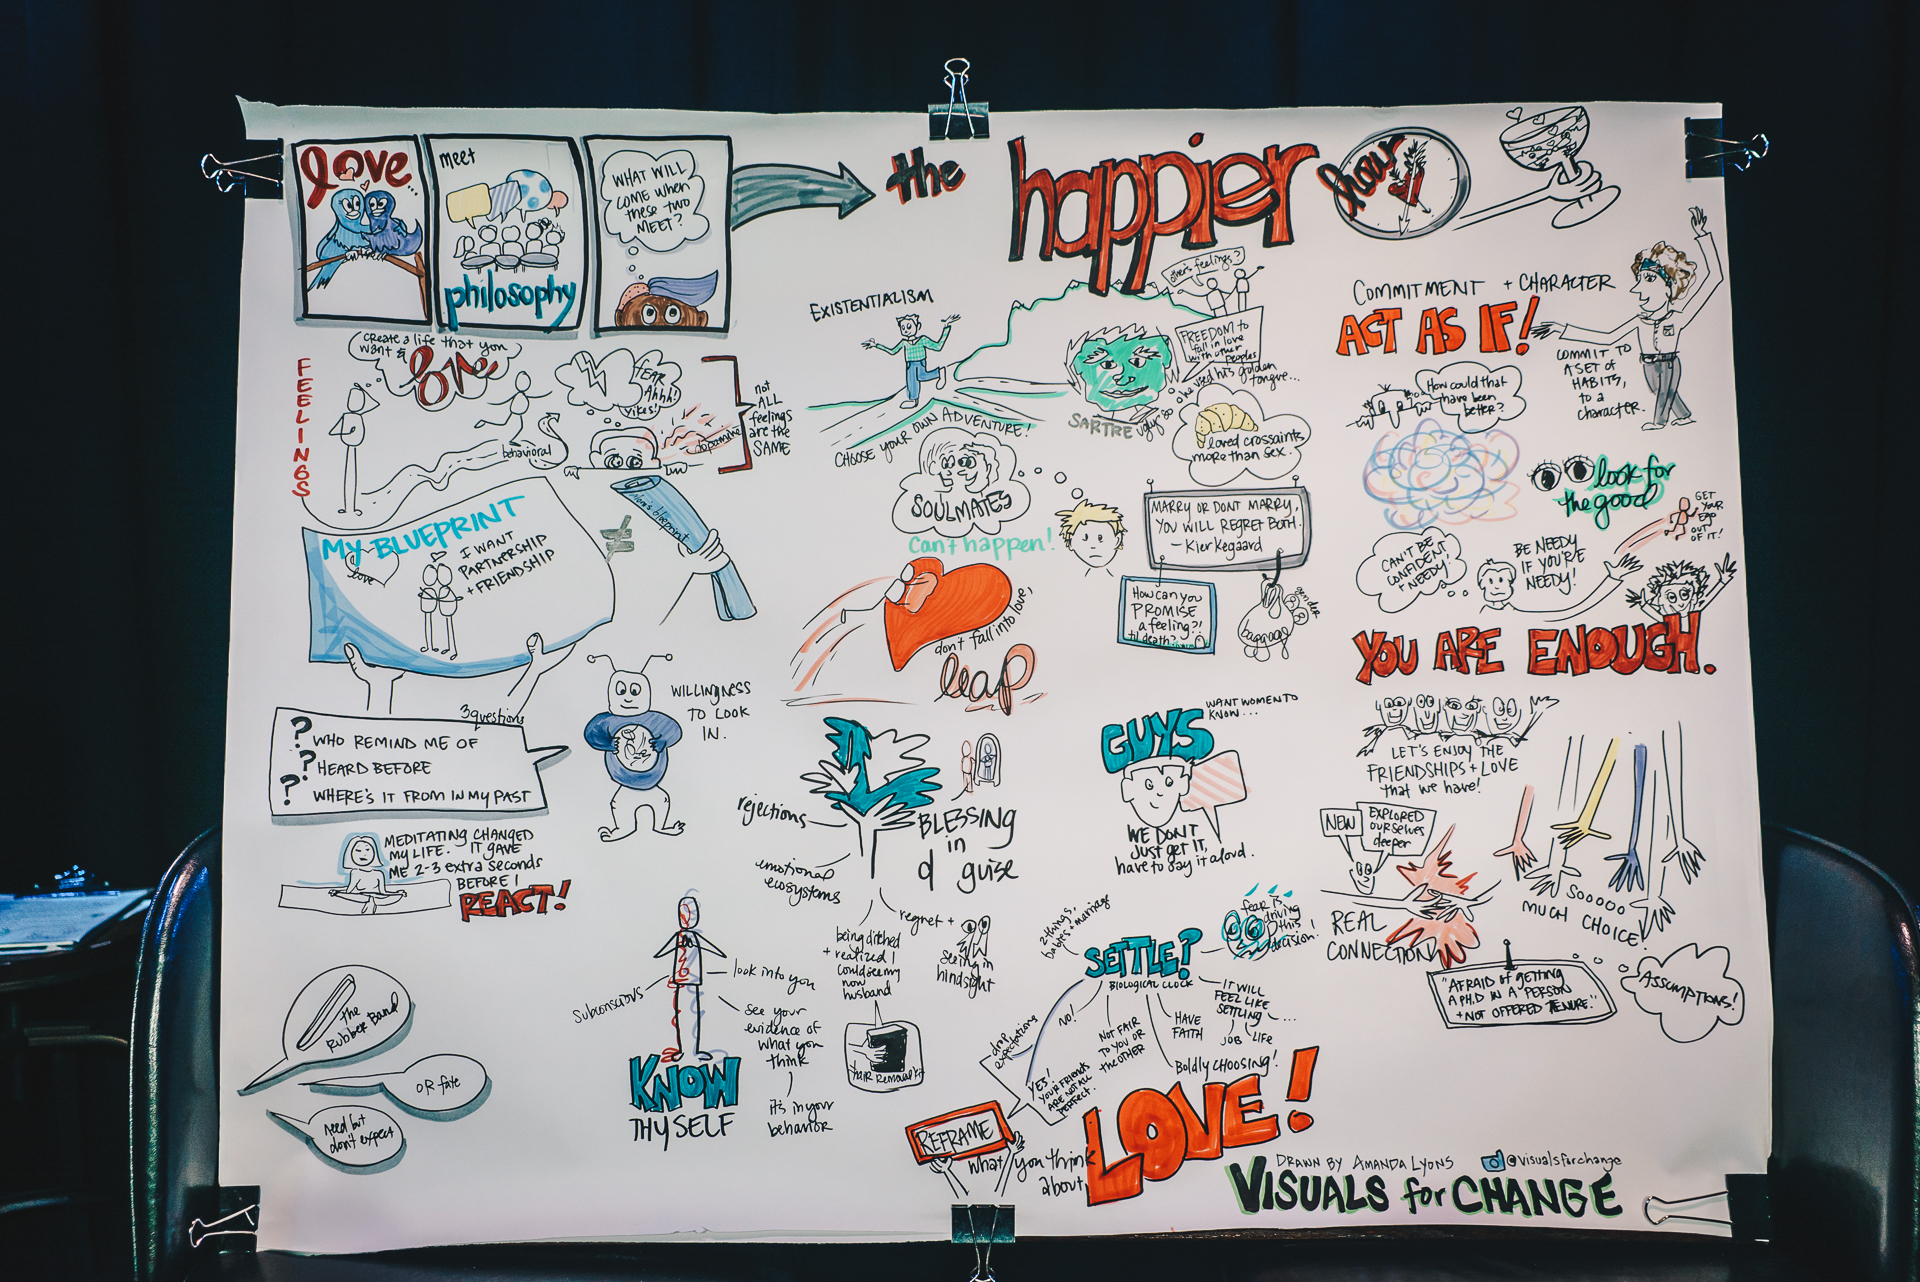 love...
meet
philosophy
WHAT WILL
COME when
these two
MEET?
the happier hour
FEELINGS
create a life that you
want &
love
behavioral
FEAR
Ahhh!
Yikes!
dopamine
not
ALL
feelings
are the
SAME
MY BLUEPRINT
love
I WANT
PARTNERSHIP
+ FRIENDSHIP
≠
Mom's blueprint
3 questions
? WHO REMIND ME OF
? HEARD BEFORE
? WHERE'S IT FROM IN MY PAST
WILLINGNESS
TO LOOK
IN.
MEDITATING CHANGED
MY LIFE. IT GAVE
ME 2-3 extra seconds
BEFORE I
REACT!
the
Rubber Band
OR fate
need but
don't expect
Subconscious
look into you
see your
evidence of
what you
think
it's in your
behavior
KNOW
THYSELF
EXISTENTIALISM
CHOOSE YOUR OWN ADVENTURE!
other's feelings?
FREEDOM to
fall in love
with other
peoples
SARTRE
ugly so he used his golden
tongue...
loved crossaints
more than sex.
SOULMATES
Can't happen!
MARRY OR DONT MARRY,
YOU WILL REGRET BOTH.
- Kierkegaard
How can you
PROMISE
a feeling?!
til death?
baggage
gender
don't fall into love,
leap
rejections
emotional
ecosystems
BLESSING
in
d guise
being ditched
+ realized I
could see my
now
husband
regret +
seeing in
hindsight
Hair Removal Kit
GUYS
WANT WOMEN TO
KNOW...
WE DON'T
JUST GET IT,
have to say it aloud.
2 things,
babies + marriage
SETTLE?
BIOLOGICAL CLOCK
fear is
driving
this
decision!
NO!
YES!
YOUR FRIENDS
ARE NOT ALL
PERFECT.
NOT FAIR
TO YOU OR
the OTHER
HAVE
FAITH
IT WILL
FEEL LIKE
SETTLING
JOB
LIFE
...
Boldly CHOOSING!
drop
expectations
REFRAME
what you think
about
LOVE!
COMMITMENT + CHARACTER
ACT AS IF!
COMMIT TO
A SET of
HABITS,
to a
character.
How could that
have been
better?
look for
the good
GET
YOUR
EGO
OUT
OF IT!
CAN'T BE
CONFIDENT
+ NEEDY!
BE NEEDY
IF YOU'RE
NEEDY!
YOU ARE ENOUGH.
LET'S ENJOY THE
FRIENDSHIPS + LOVE
that we have!
NEW
EXPLORED
ourselves
deeper
REAL
CONNECTION
SOOOOO
MUCH CHOICE!
"AFRAID of getting
A PH.D IN A PERSON
+ NOT OFFERED TENURE."
ASSUMPTIONS!
DRAWN BY AMANDA LYONS @visualsforchange
VISUALS for CHANGE